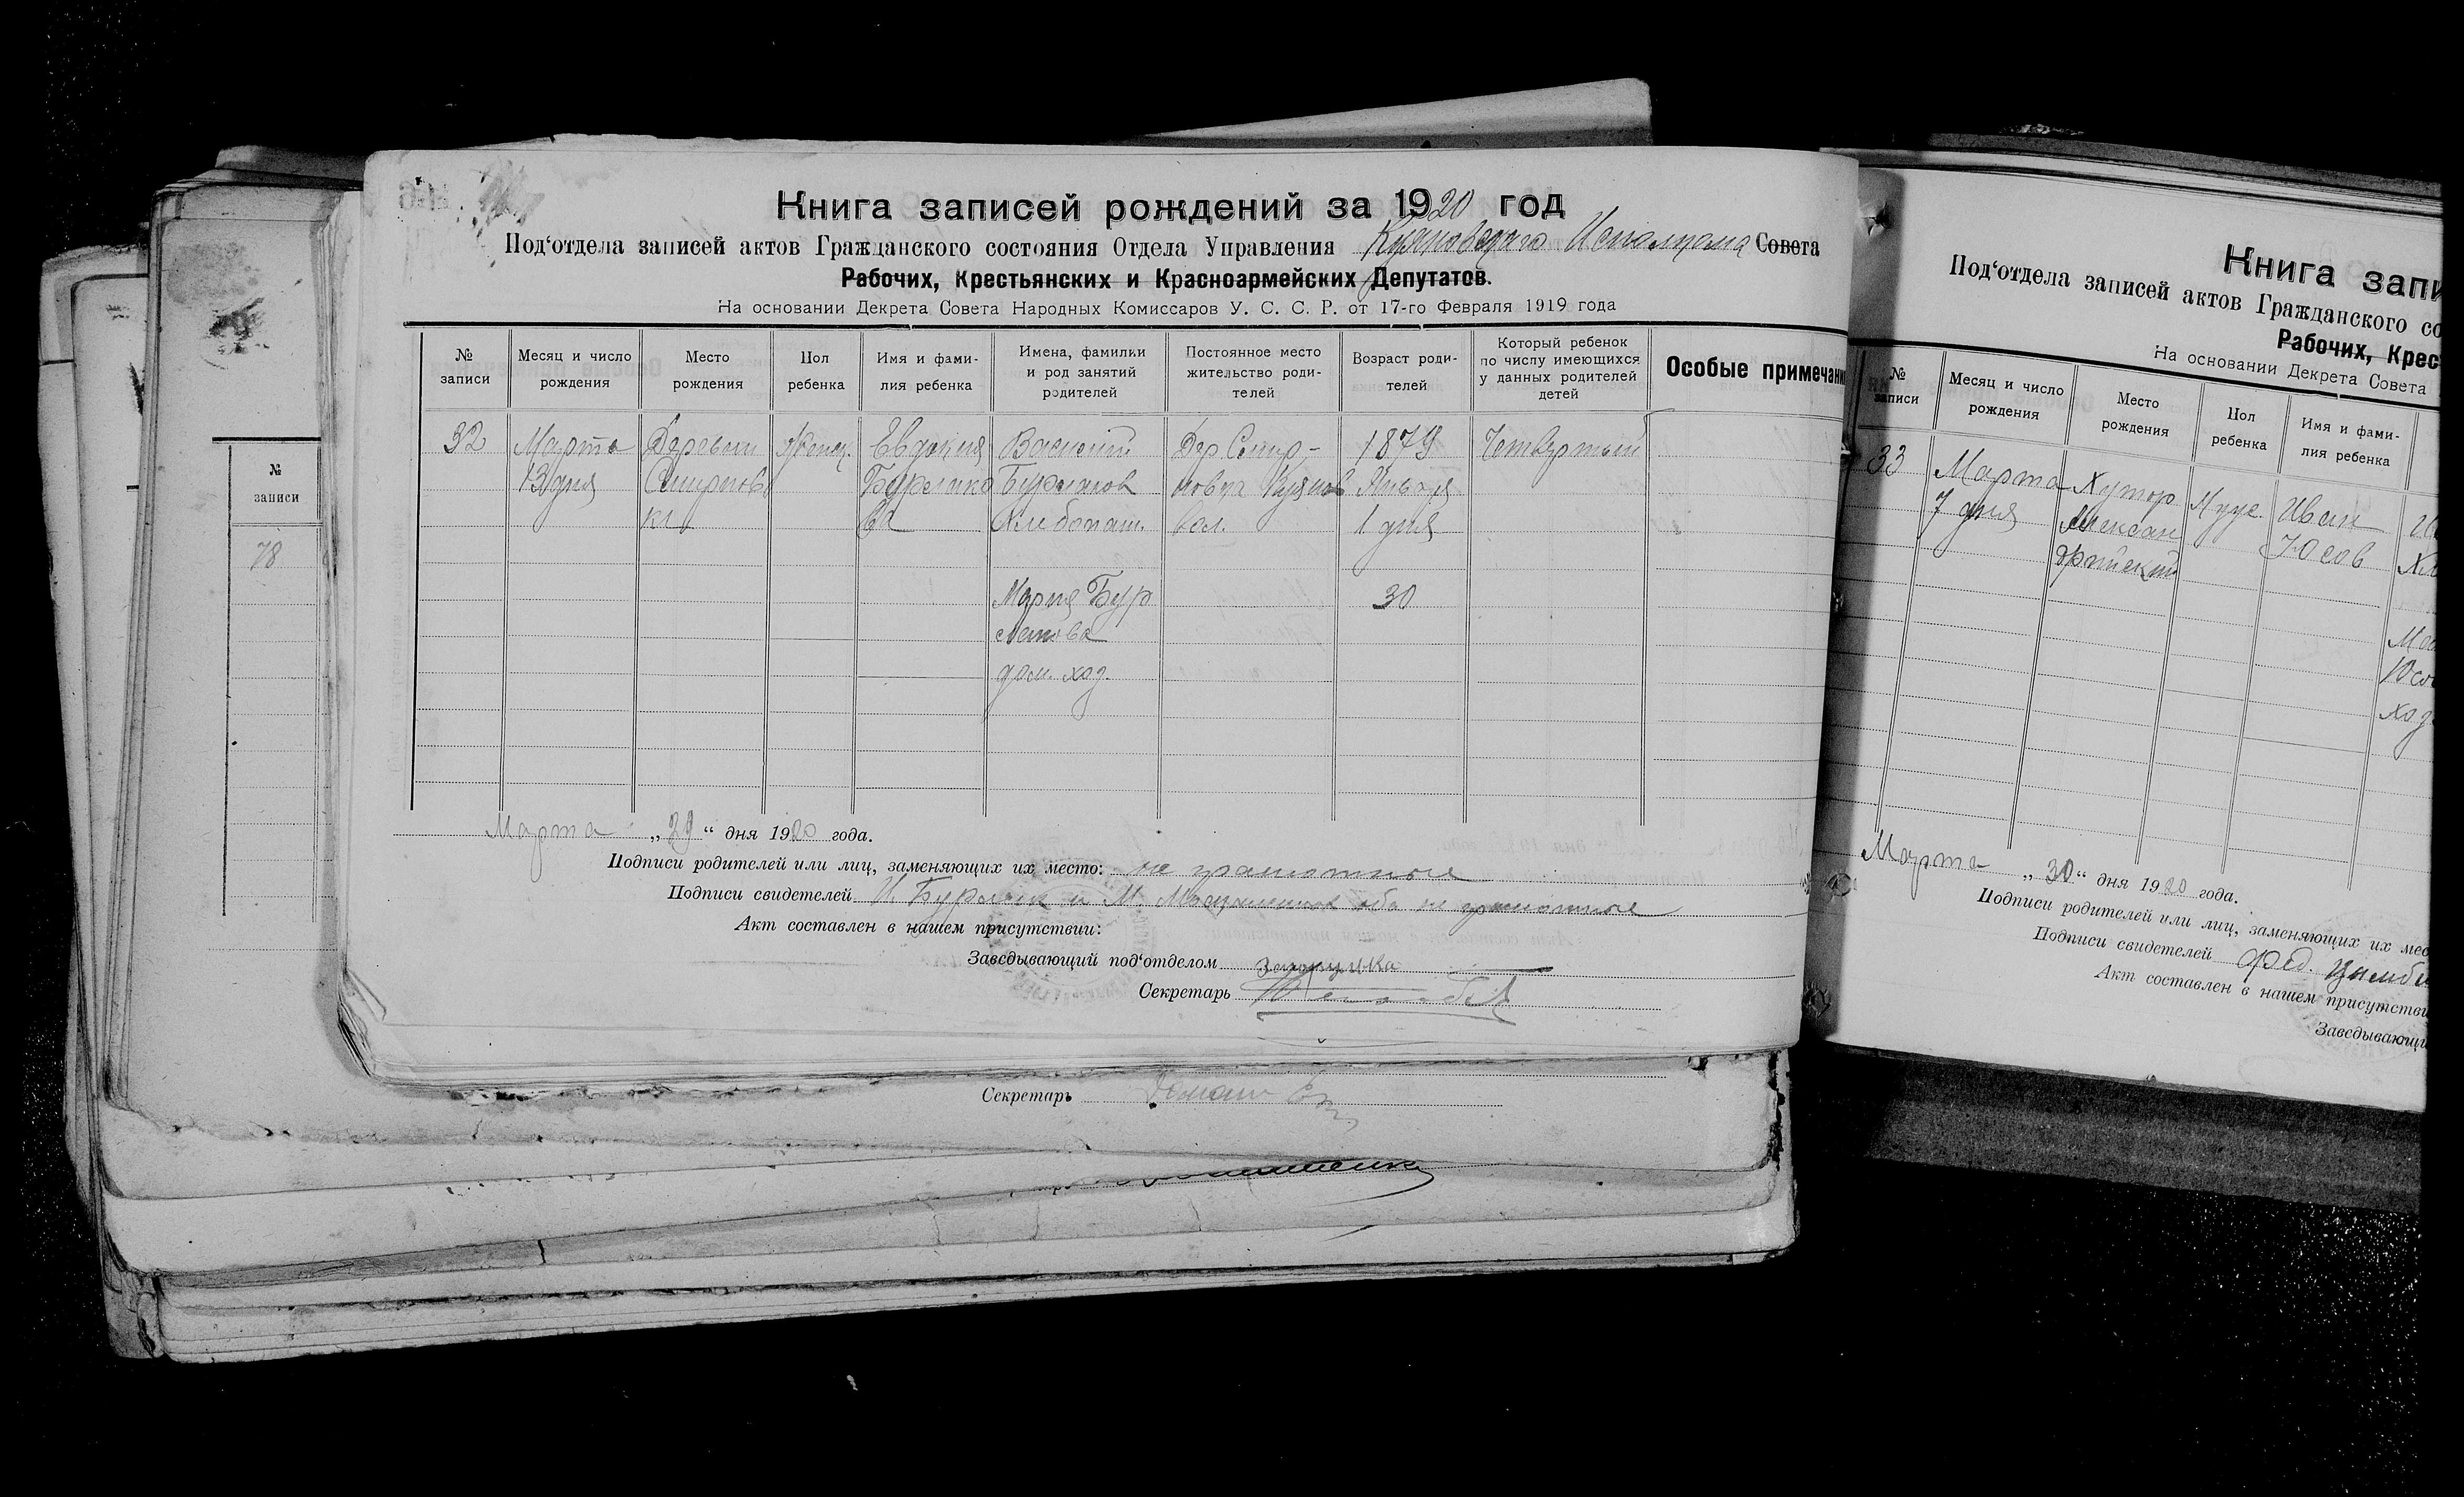 Книга записей рождений за 1920 год
Под'отдела записей актов Гражданского состояния Отдела Управления Куяновского Исполкома Совета
Рабочих, Крестьянских и Красноармейских Депутатов.
На основании Декрета Совета Народных Комиссаров У. С. С. Р. от 17-го Февраля 1919 года
№ записи
Месяц и число рождения
Место рождения
Пол ребенка
Имя и фами-
лия ребенка
Имена, фамилии
и род занятий
родителей
Постоянное место
жительство роди-
телей
Возраст роди-
телей
Который ребенок
по числу имеющихся
у данных родителей
детей
Особые примечани
32
Марта
13 дня
Деревни
Смирновки
Женск.
Евдокия
Бурлако
ва
Василий
Бурлаков
Хлебопаш.
Мария Бур
лакова
дом. хоз.
Дер Смир-
новка Куянов
вол.
1879
Января
1 дня
30
Четвертый
Марта „29“ дня 1920 года.
Подписи родителей или лиц, заменяющих их место: не грамотные
Подписи свидетелей И. Бурлак и М. оба не грамотные
Акт составлен в нашем присутствии:
Заведывающий под'отделом
Секретарь
Секретарь
№
записи
78
Книга запи
Под'отдела записей актов Гражданского со
Рабочих, Крес
На основании Декрета Совета
№ записи
Месяц и число
рождения
Место
рождения
Пол
ребенка
Имя и фами-
лия ребенка
33
Марта
7 дня
Хутор
Алексан
дрийский
Муж.
Иван
Юсов
Марта „30“ дня 1920 года.
Подписи родителей или лиц, заменяющих их мес
Подписи свидетелей Фед. Цымба
Акт составлен в нашем присутстви
Заведывающи